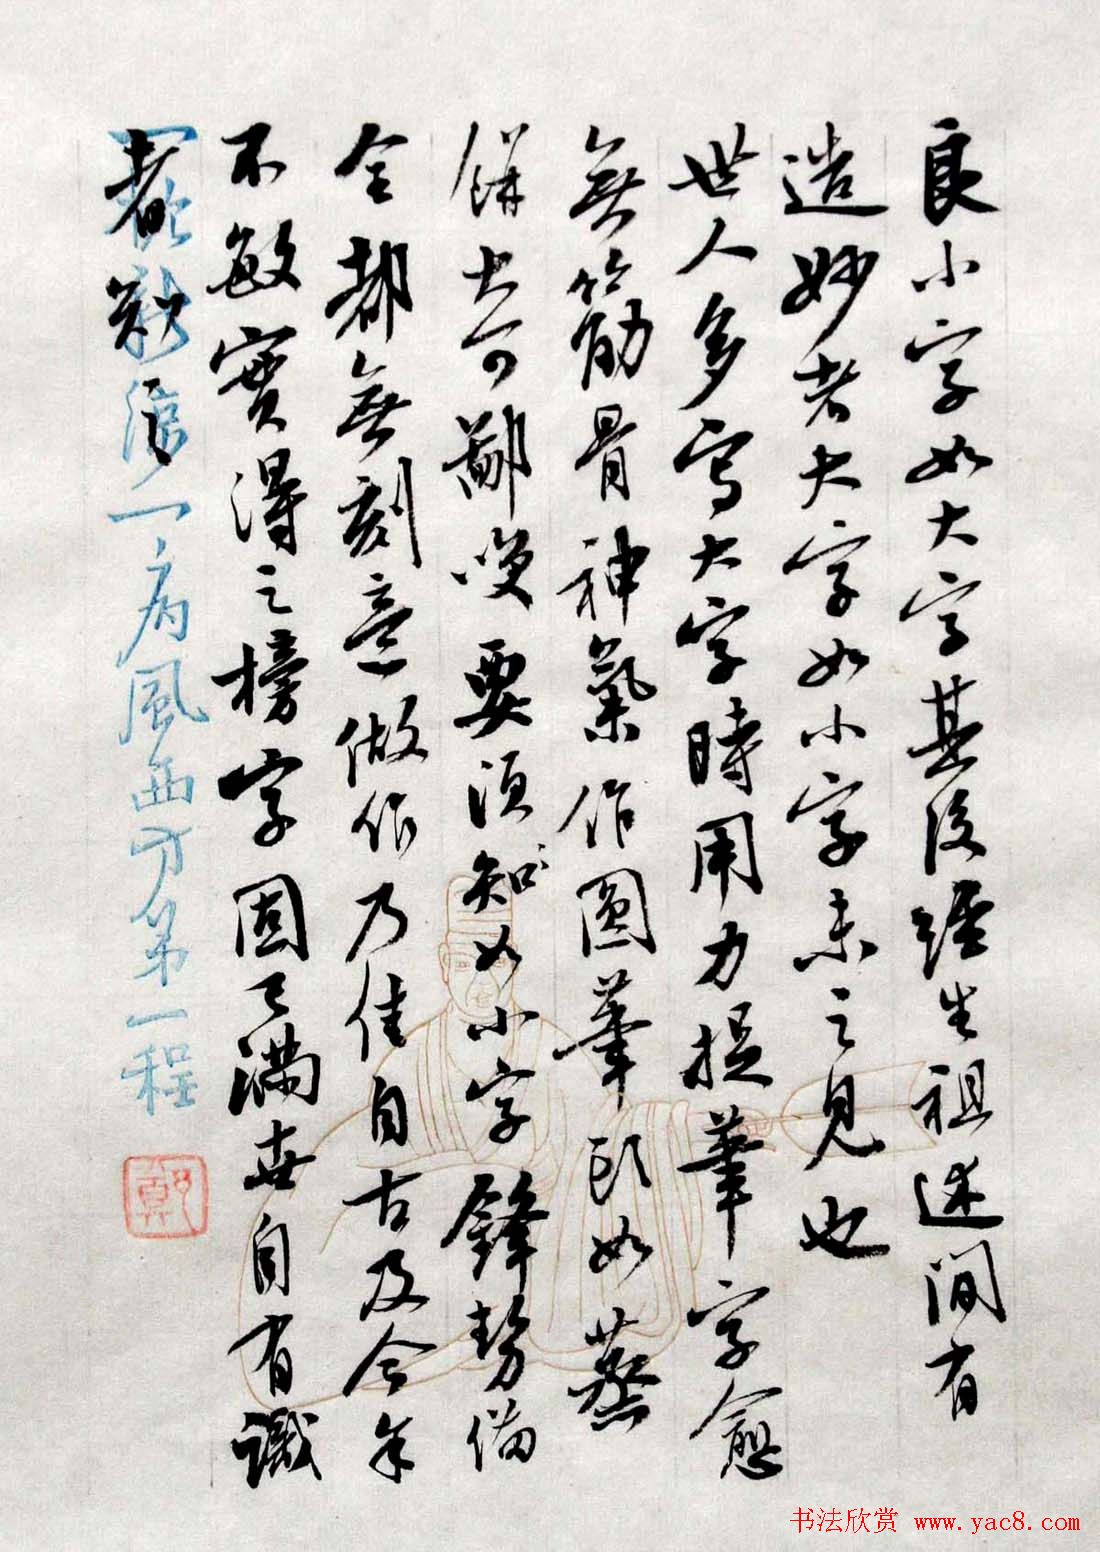 良小字如大字其後經生祖述間有
造妙者大字如小字未之見也
世人多寫大字時用力捉筆字愈
無筋骨神氣作圓筆頭如蒸
餅大可鄙笑要須知如小字鋒勢備
全都無刻意做作乃佳自古及今余
不敏實得之榜字固已滿世自有識
者一病風西方第一程
书法欣赏 www.yac8.com